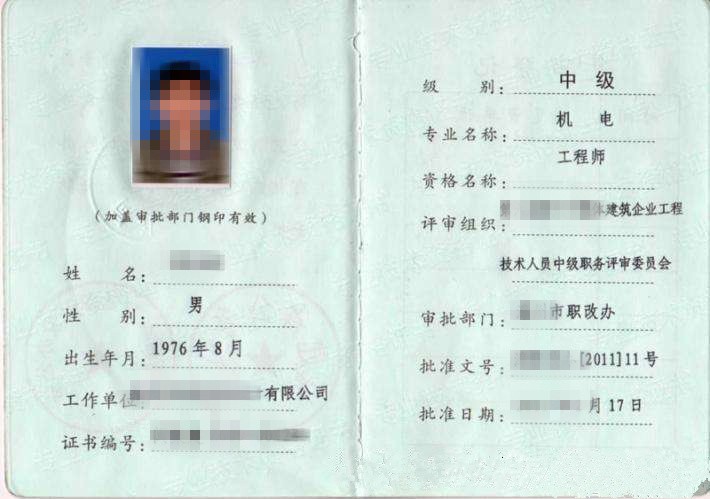 (加盖审批部门钢印有效)
姓 名:
性 别: 男
出生年月: 1976年8月
工作单位 有限公司
证书编号:
级 别: 中 级
专业名称: 机 电
资格名称: 工程师
评审组织: 建筑企业工程
技术人员中级职务评审委员会
审批部门: 市职改办
批准文号: [2011]11号
批准日期: 月17日